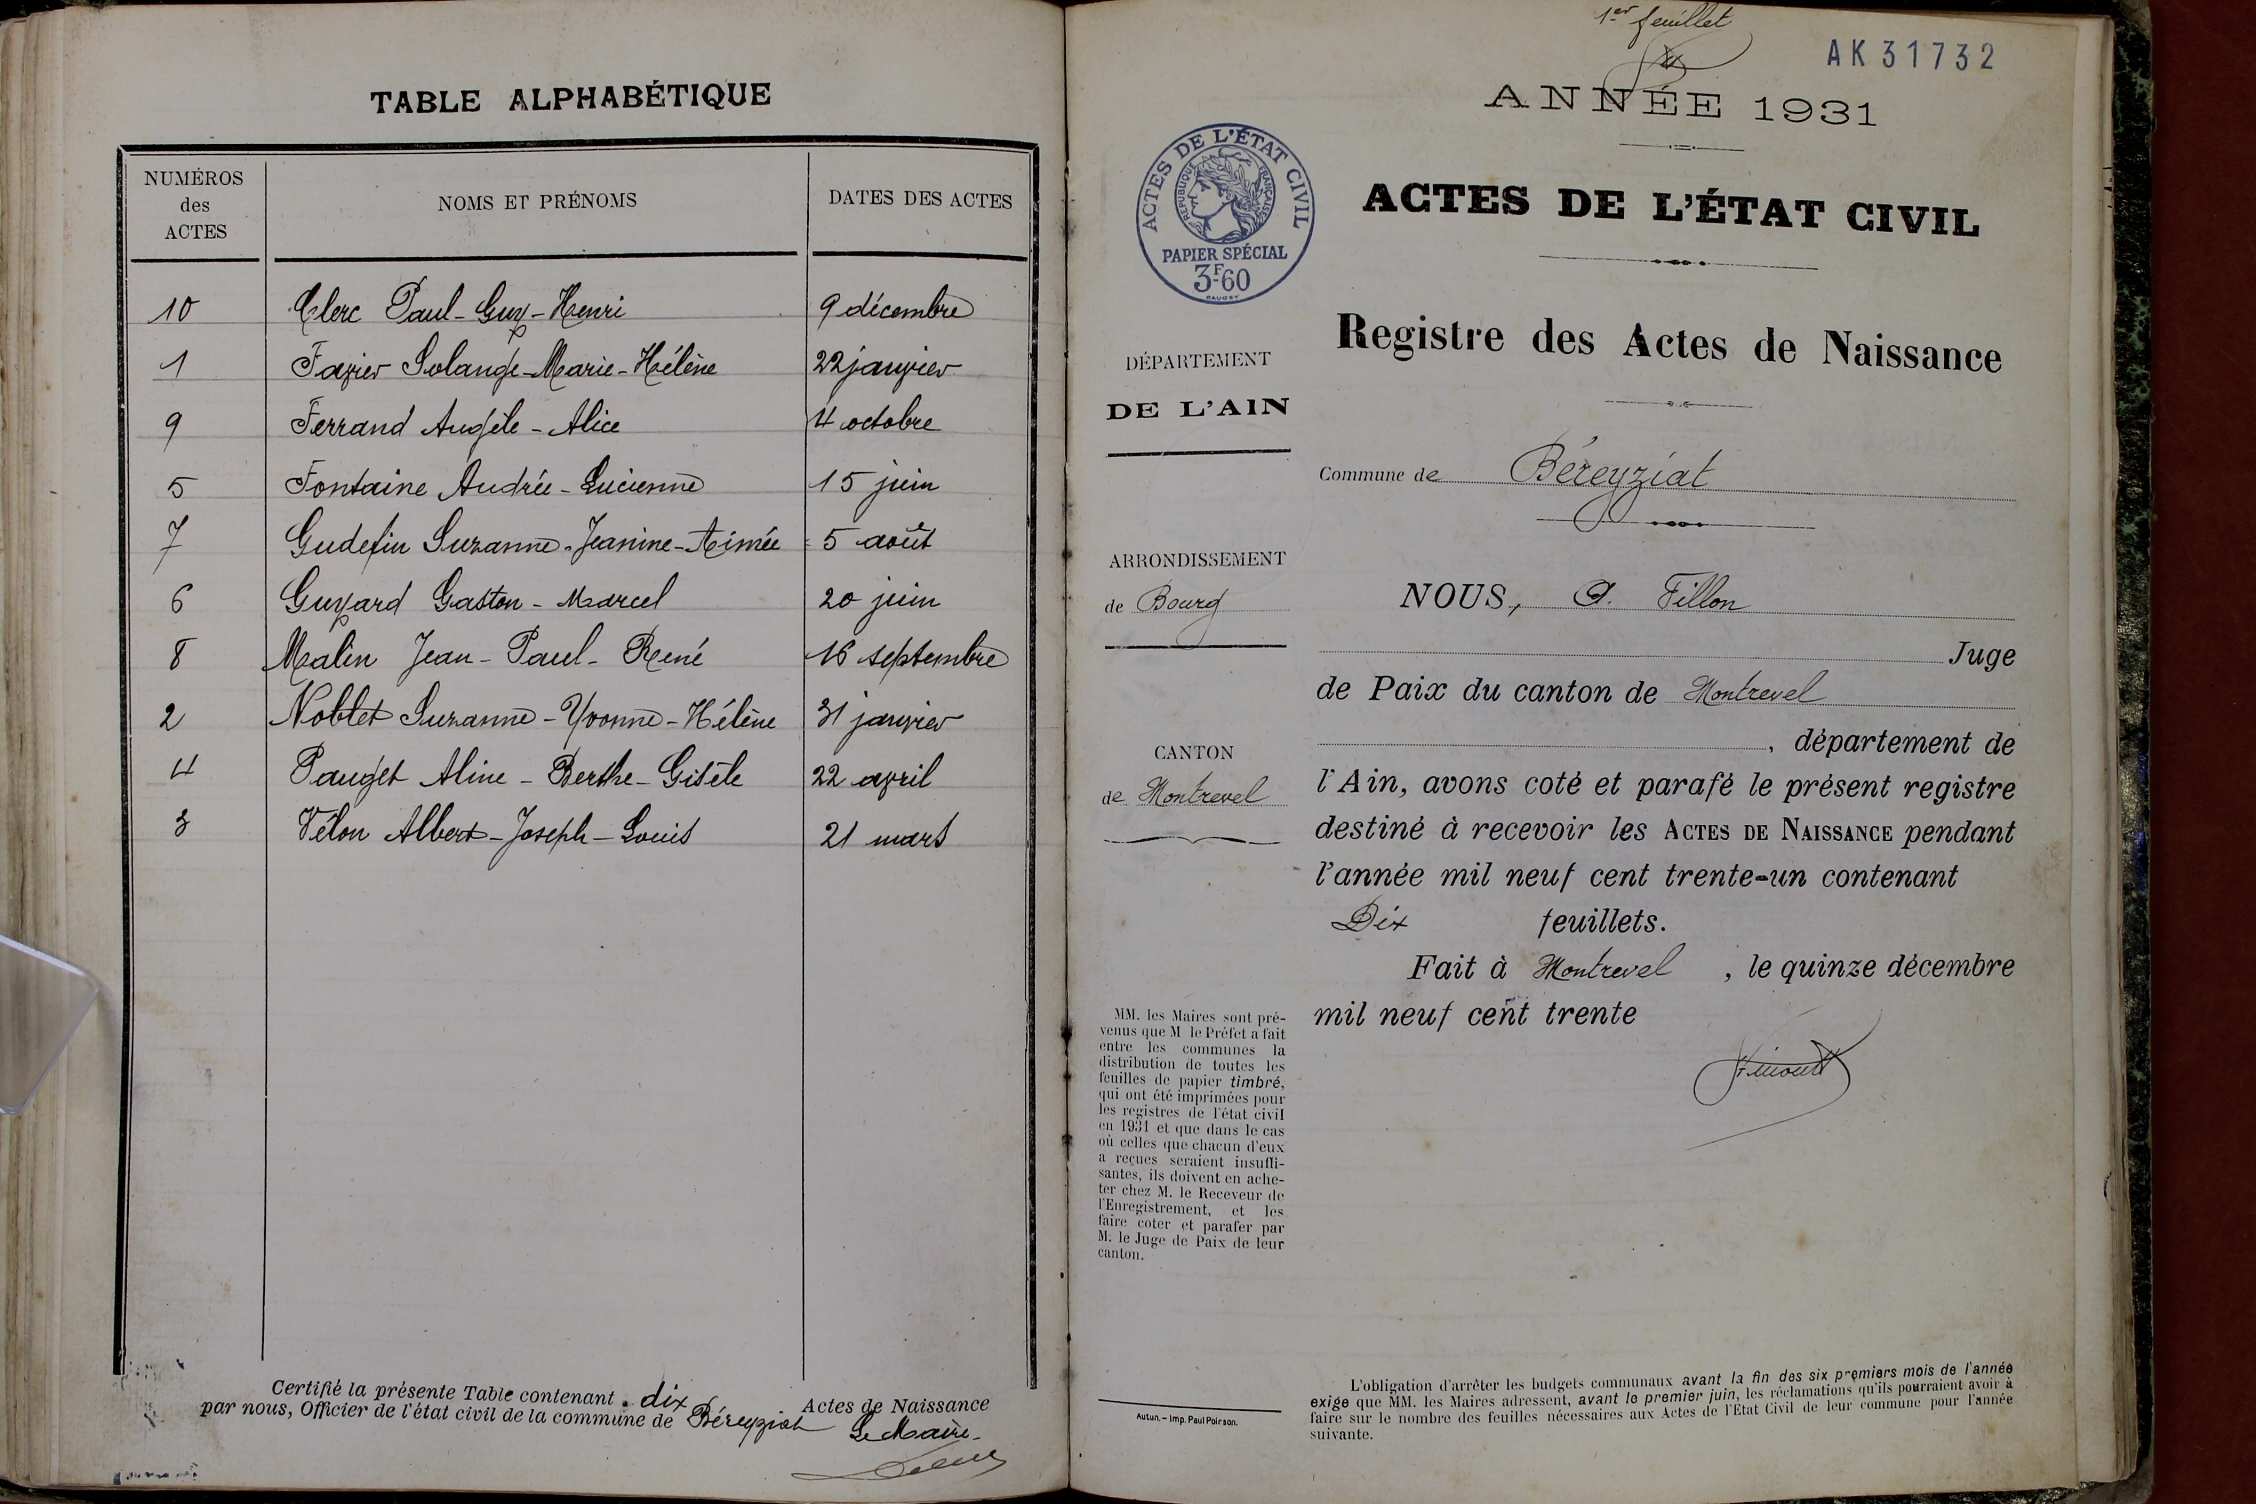 TABLE ALPHABÉTIQUE
NUMÉROS des ACTES NOMS ET PRÉNOMS DATES DES ACTES
10 Clerc Paul-Guy-Henri 9 décembre
1 Favier Solange-Marie-Hélène 22 janvier
9 Ferrand Angèle-Alice 4 octobre
5 Fontaine Andrée-Lucienne 15 juin
7 Gudefin Suzanne-Jeanine-Aimée 5 août
6 Guyard Gaston-Marcel 20 juin
8 Malin Jean-Paul-René 16 septembre
2 Noblet Suzanne-Yvonne-Hélène 31 janvier
4 Pauget Aline-Berthe-Gisèle 22 avril
3 Vélon Albert-Joseph-Louis 21 mars
Certifié la présente Table contenant dix Actes de Naissance
par nous, Officier de l'état civil de la commune de Béreyziat
Le Maire
1er feuillet
AK 31732
ANNÉE 1931
ACTES DE L'ÉTAT CIVIL
RÉPUBLIQUE FRANÇAISE
PAPIER SPÉCIAL
3F60
ACTES DE L'ÉTAT CIVIL
Registre des Actes de Naissance
DÉPARTEMENT
DE L'AIN
Commune de Béreyziat
ARRONDISSEMENT
de Bourg
CANTON
de Montrevel
NOUS, Fillon
Juge
de Paix du canton de Montrevel
, département de
l'Ain, avons coté et parafé le présent registre
destiné à recevoir les ACTES DE NAISSANCE pendant
l'année mil neuf cent trente-un contenant
Dix feuillets.
Fait à Montrevel, le quinze décembre
mil neuf cent trente
MM. les Maires sont pré-
venus que M le Préfet a fait
entre les communes la
distribution de toutes les
feuilles de papier timbré,
qui ont été imprimées pour
les registres de l'état civil
en 1931 et que dans le cas
où celles que chacun d'eux
a reçues seraient insuffi-
santes, ils doivent en ache-
ter chez M. le Receveur de
l'Enregistrement, et les
faire coter et parafer par
M. le Juge de Paix de leur
canton.
Autun. - Imp. Paul Poirson.
L'obligation d'arrêter les budgets communaux avant la fin des six premiers mois de l'année
exige que MM. les Maires adressent, avant le premier juin, les réclamations qu'ils pourraient avoir à
faire sur le nombre des feuilles nécessaires aux Actes de l'Etat Civil de leur commune pour l'année
suivante.